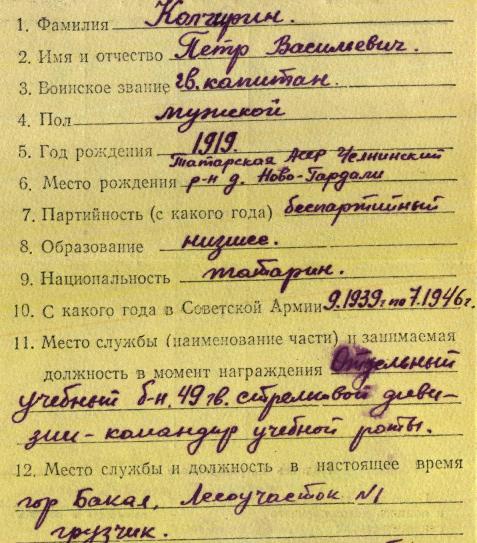 1. Фамилия Колчурин.
2. Имя и отчество Петр Васильевич.
3. Воинское звание гв. капитан.
4. Пол мужской
5. Год рождения 1919.
Татарская Асср Челнинский
6. Место рождения р-н д. Ново-Гардали
7. Партийность (с какого года) беспартийный
8. Образование низшее.
9. Национальность татарин.
10. С какого года в Советской Армии 9.1939г по 7.1946г.
11. Место службы (наименование части) и занимаемая
должность в момент награждения Отдельный
учебный б-н, 49 гв. стрелковой диви-
зии - командир учебной роты.
12. Место службы и должность в настоящее время
гор Бакал, Лесоучасток №1
грузчик.